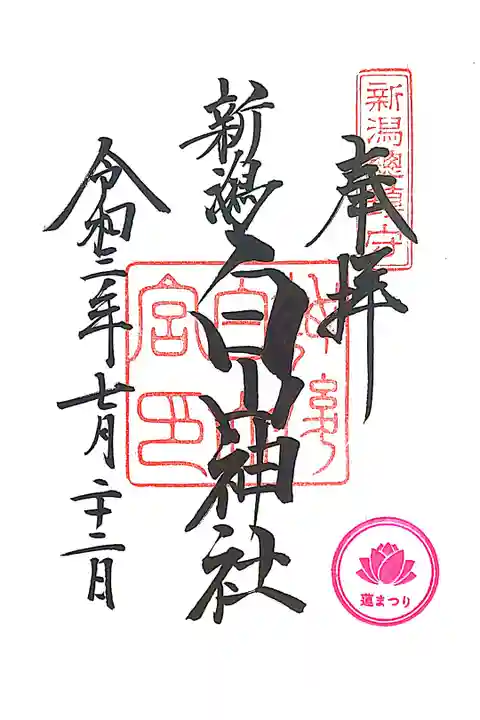 奉拝
新潟總鎮守
新潟白山神社
令和三年七月二十二日
蓮まつり